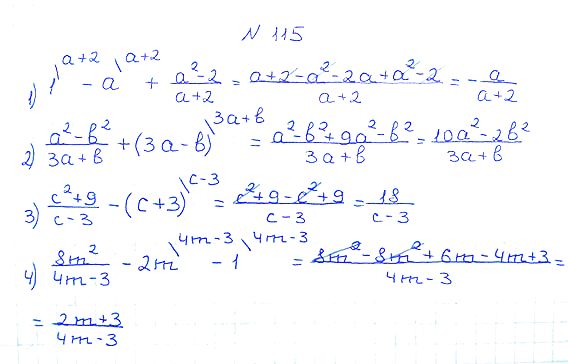 N 115
1) 1^{\a+2} - a^{\a+2} + (a²-2)/(a+2) = (a+2-a²-2a+a²-2)/(a+2) = -a/(a+2)
2) (a²-b²)/(3a+b) + (3a-b)^{\3a+b} = (a²-b²+9a²-b²)/(3a+b) = (10a²-2b²)/(3a+b)
3) (c²+9)/(c-3) - (c+3)^{\c-3} = (c²+9-c²+9)/(c-3) = 18/(c-3)
4) (8m²)/(4m-3) - 2m^{\4m-3} - 1^{\4m-3} = (8m²-8m²+6m-4m+3)/(4m-3) =
= (2m+3)/(4m-3)